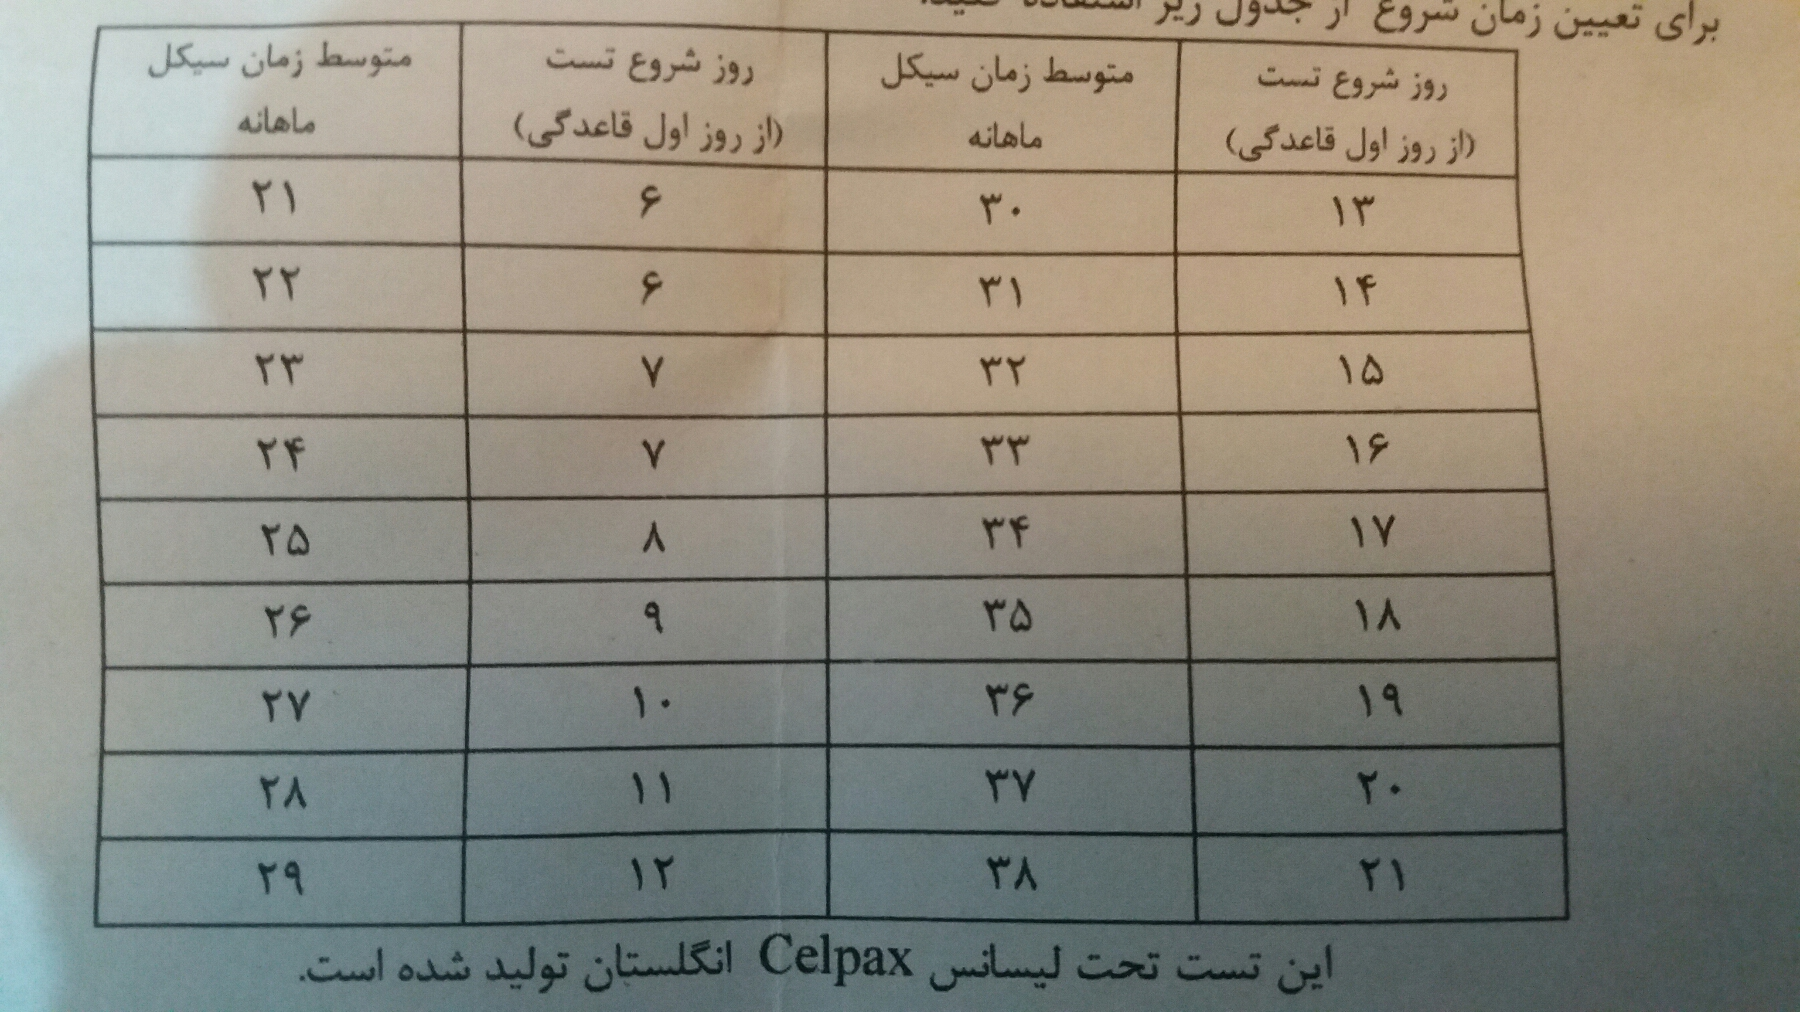 برای تعیین زمان شروع از جدول زیر استفاده کنید.
روز شروع تست (از روز اول قاعدگی) متوسط زمان سیکل ماهانه روز شروع تست (از روز اول قاعدگی) متوسط زمان سیکل ماهانه
۱۳ ۳۰ ۶ ۲۱
۱۴ ۳۱ ۶ ۲۲
۱۵ ۳۲ ۷ ۲۳
۱۶ ۳۳ ۷ ۲۴
۱۷ ۳۴ ۸ ۲۵
۱۸ ۳۵ ۹ ۲۶
۱۹ ۳۶ ۱۰ ۲۷
۲۰ ۳۷ ۱۱ ۲۸
۲۱ ۳۸ ۱۲ ۲۹
این تست تحت لیسانس Celpax انگلستان تولید شده است.